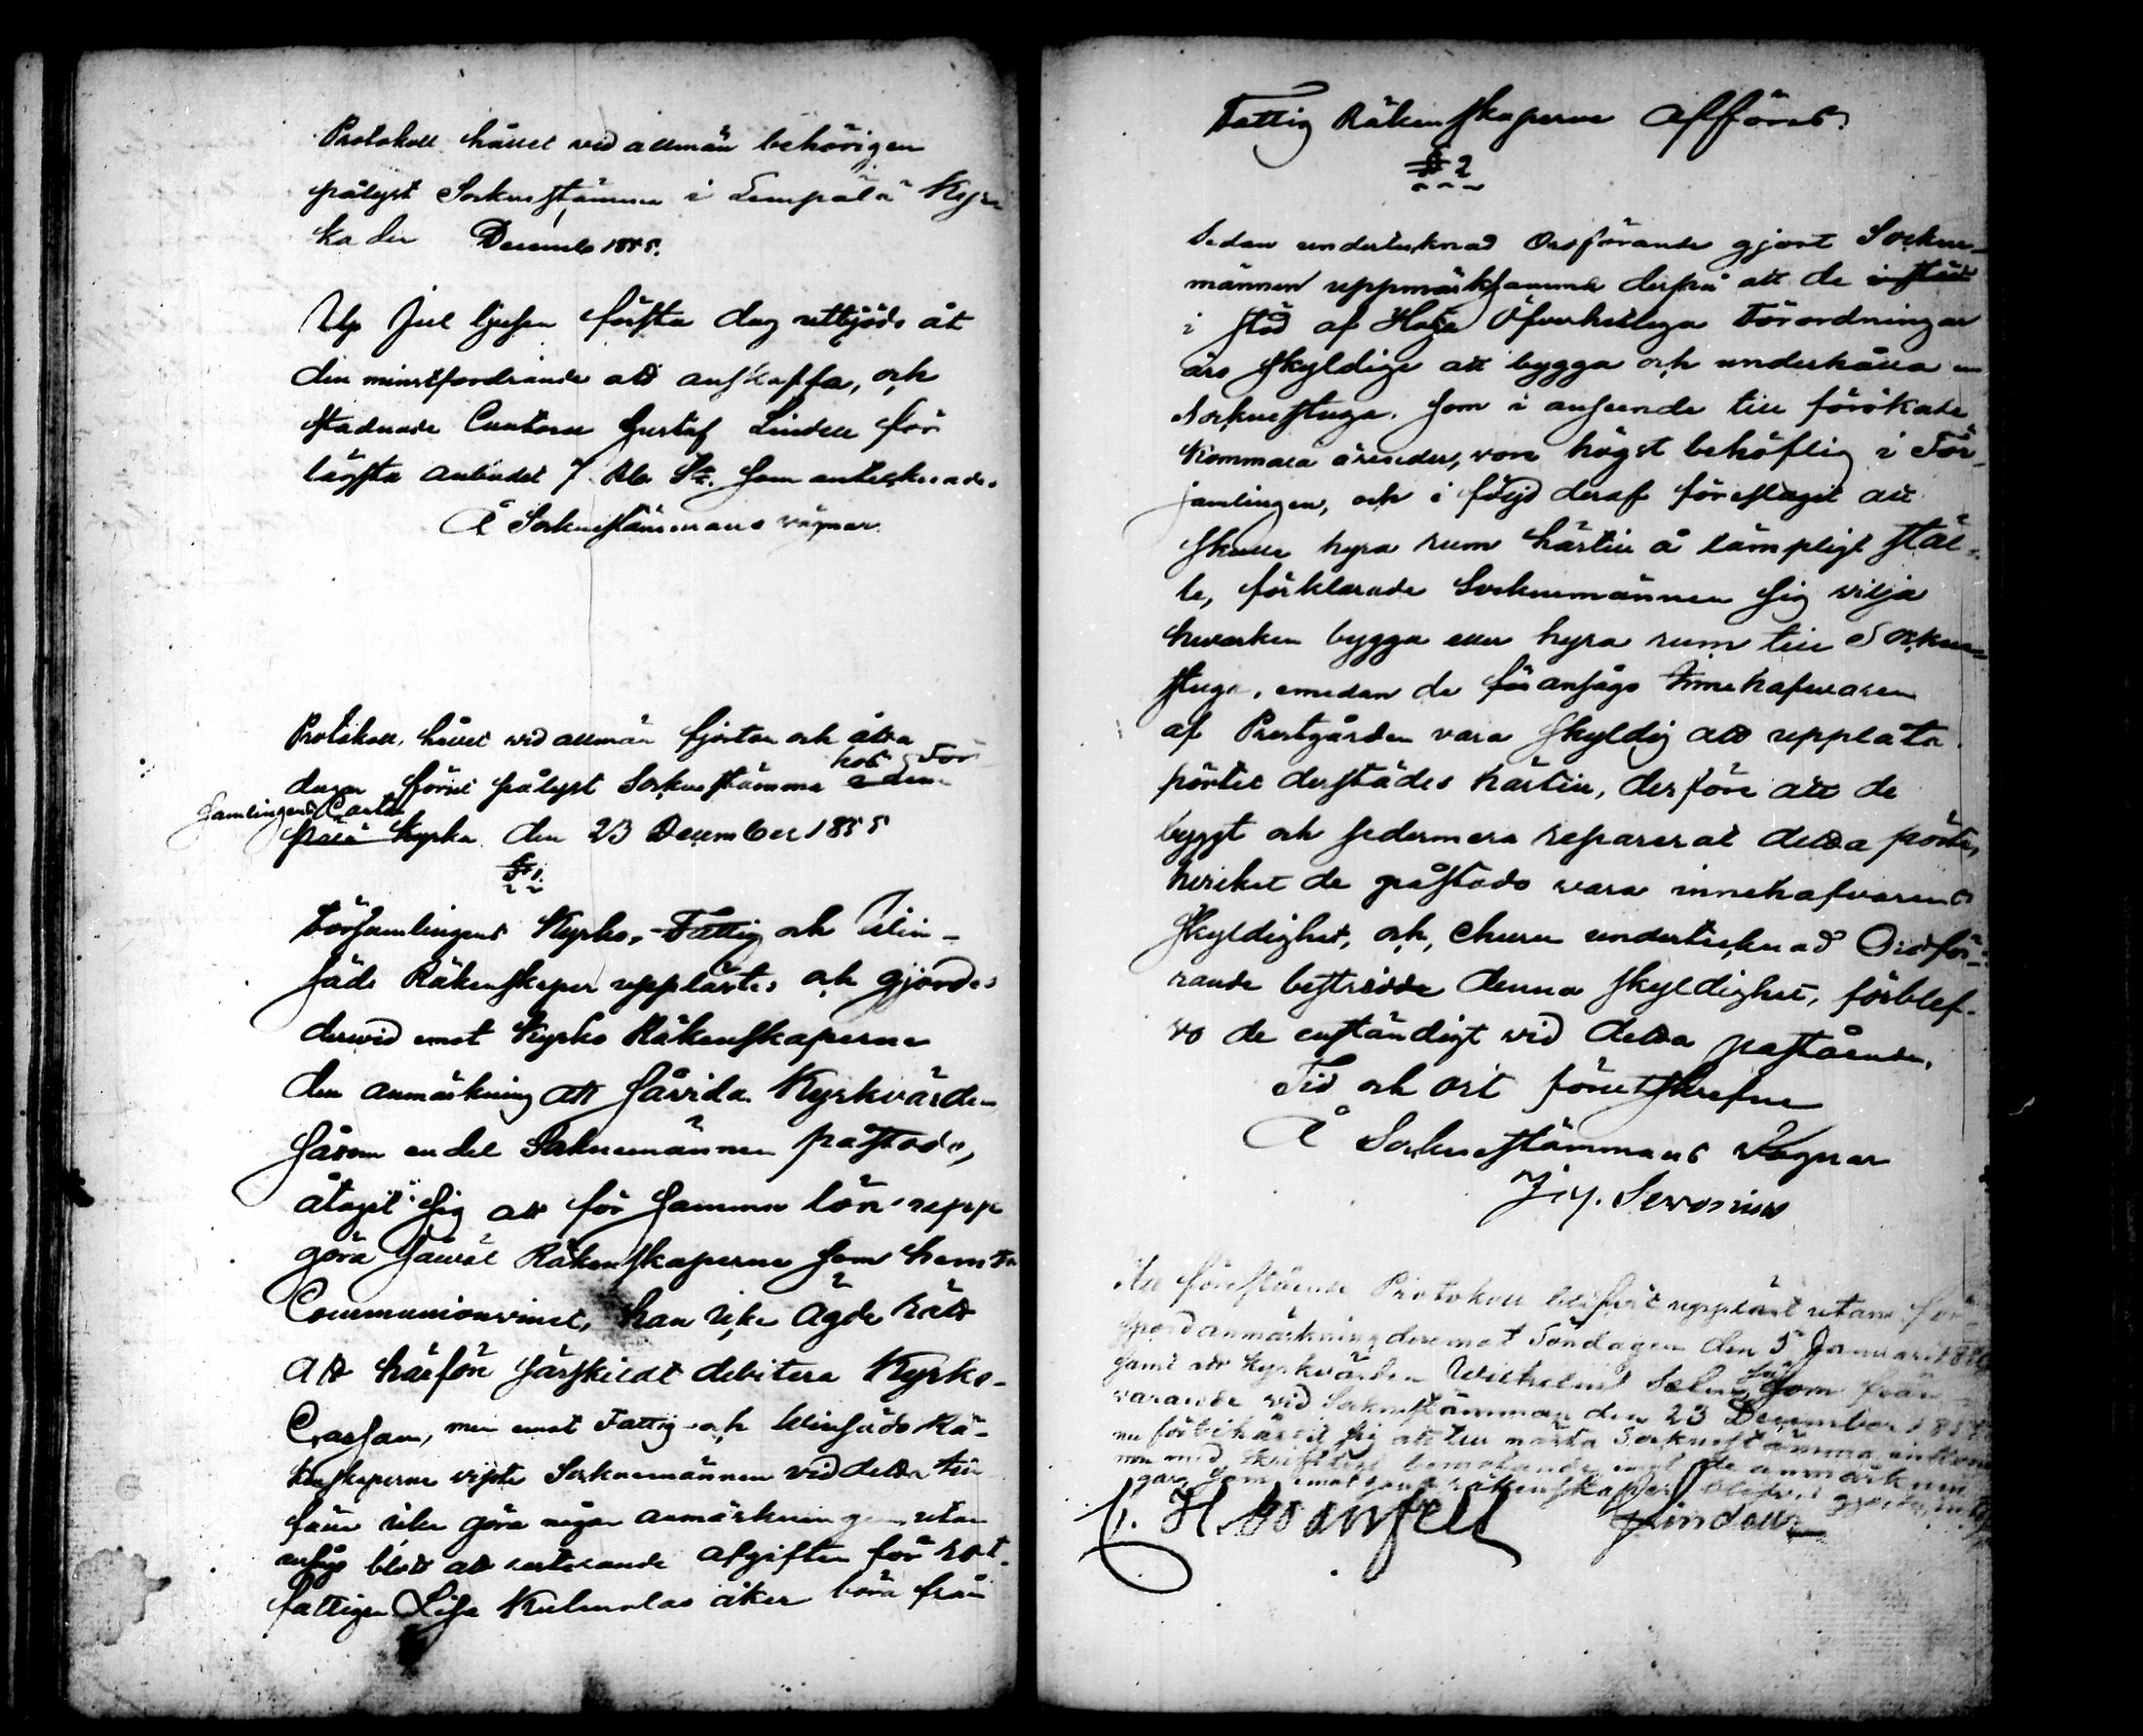 Protokoll hållet vid allmän behörigen
pålyst Sockenstämma i Lempälä Kyr-
ka den Decemb 1855.
Up Jul ljusen första dag utbjöds åt
den minstfordrande att anskaffa, och
stadnade Cantorn Gustaf Lindell för
lägsta anbudet 7 Rb. Sr. som antecknades
Å Sockenstämmans vägnar.
Protokoll, hållet vid allmän fjorton och åtta
dagar förut pålyst Sockenstämma hos För
samlingens
Kyrka den 23 December 1855
§ 1.
Församlingens Kyrko-, Fattig och Win-
säds Räkenskaper upplästes och gjordes
dervid emot Kyrko Räkenskaperne
den anmärkning att såvida Kyrkvärden
såsom en del Socknemännen påstodo,
åtagit sig att för samma lön upp
göra såwäl Räkenskaperne som hemta
Communionvinet, han icke ägde rätt
att härför särskildt debitera Kyrko-
Cassan, men emot Fattig och Winsäds Rä-
kenskaperne visste Socknemännen vid detta till
fälle icke göra några anmärkningar, utan
ansågo blott att resterande afgiften för rot-
fattigen Lisa Kulmalas åker böra från
Fattig Räkenskaperne afföras.
§ 2
Sedan undertecknad Ordförande gjort Sockne-
männen uppmärksamma derpå att de
i stöd af Höga Öfverhetliga Förordningar
äro skyldige att bygga och underhålla en
Socknestuga, som i anseende till förökade
Kommunala ärender, vore högst behöflig i För-
samlingen, och i följd deraf föreslagit att
skulle hyra rum härtill å lämpligt stäl-
le, förklarade Socknemännen sig vilja
hwarken bygga eller hyra rum till Sockne-
stuga, emedan de ansågo Innehafvaren
af Prestgården vara skyldig att upplåta
pörtet derstädes härtill, derföre att de
byggt och sedermera reparerat detta pörte,
hvilket de påstodo vara innehafvarens
skyldighet, och, ehuru undertecknad Ordfö-
rande bestridde denna skyldighet, förblef-
vo de enständigt vid detta påstående.
Tid och ort förutskrefne
Å Sockenstämmans Vägnar
Jos. Servonius
Att föreståénde Protokoll blifvit uppläst utan
gjord anmärkning deremot Söndagen den 5 Januari
samt att Kyrkvärden Wilhelm som från
varande vid Sockenstämman den 23 December
nu förbehållit sig att till nästa Sockenstämma
med skriftligt bemötande emot de anmärknin
gar som emot räkenskaper
C. H. Lindell